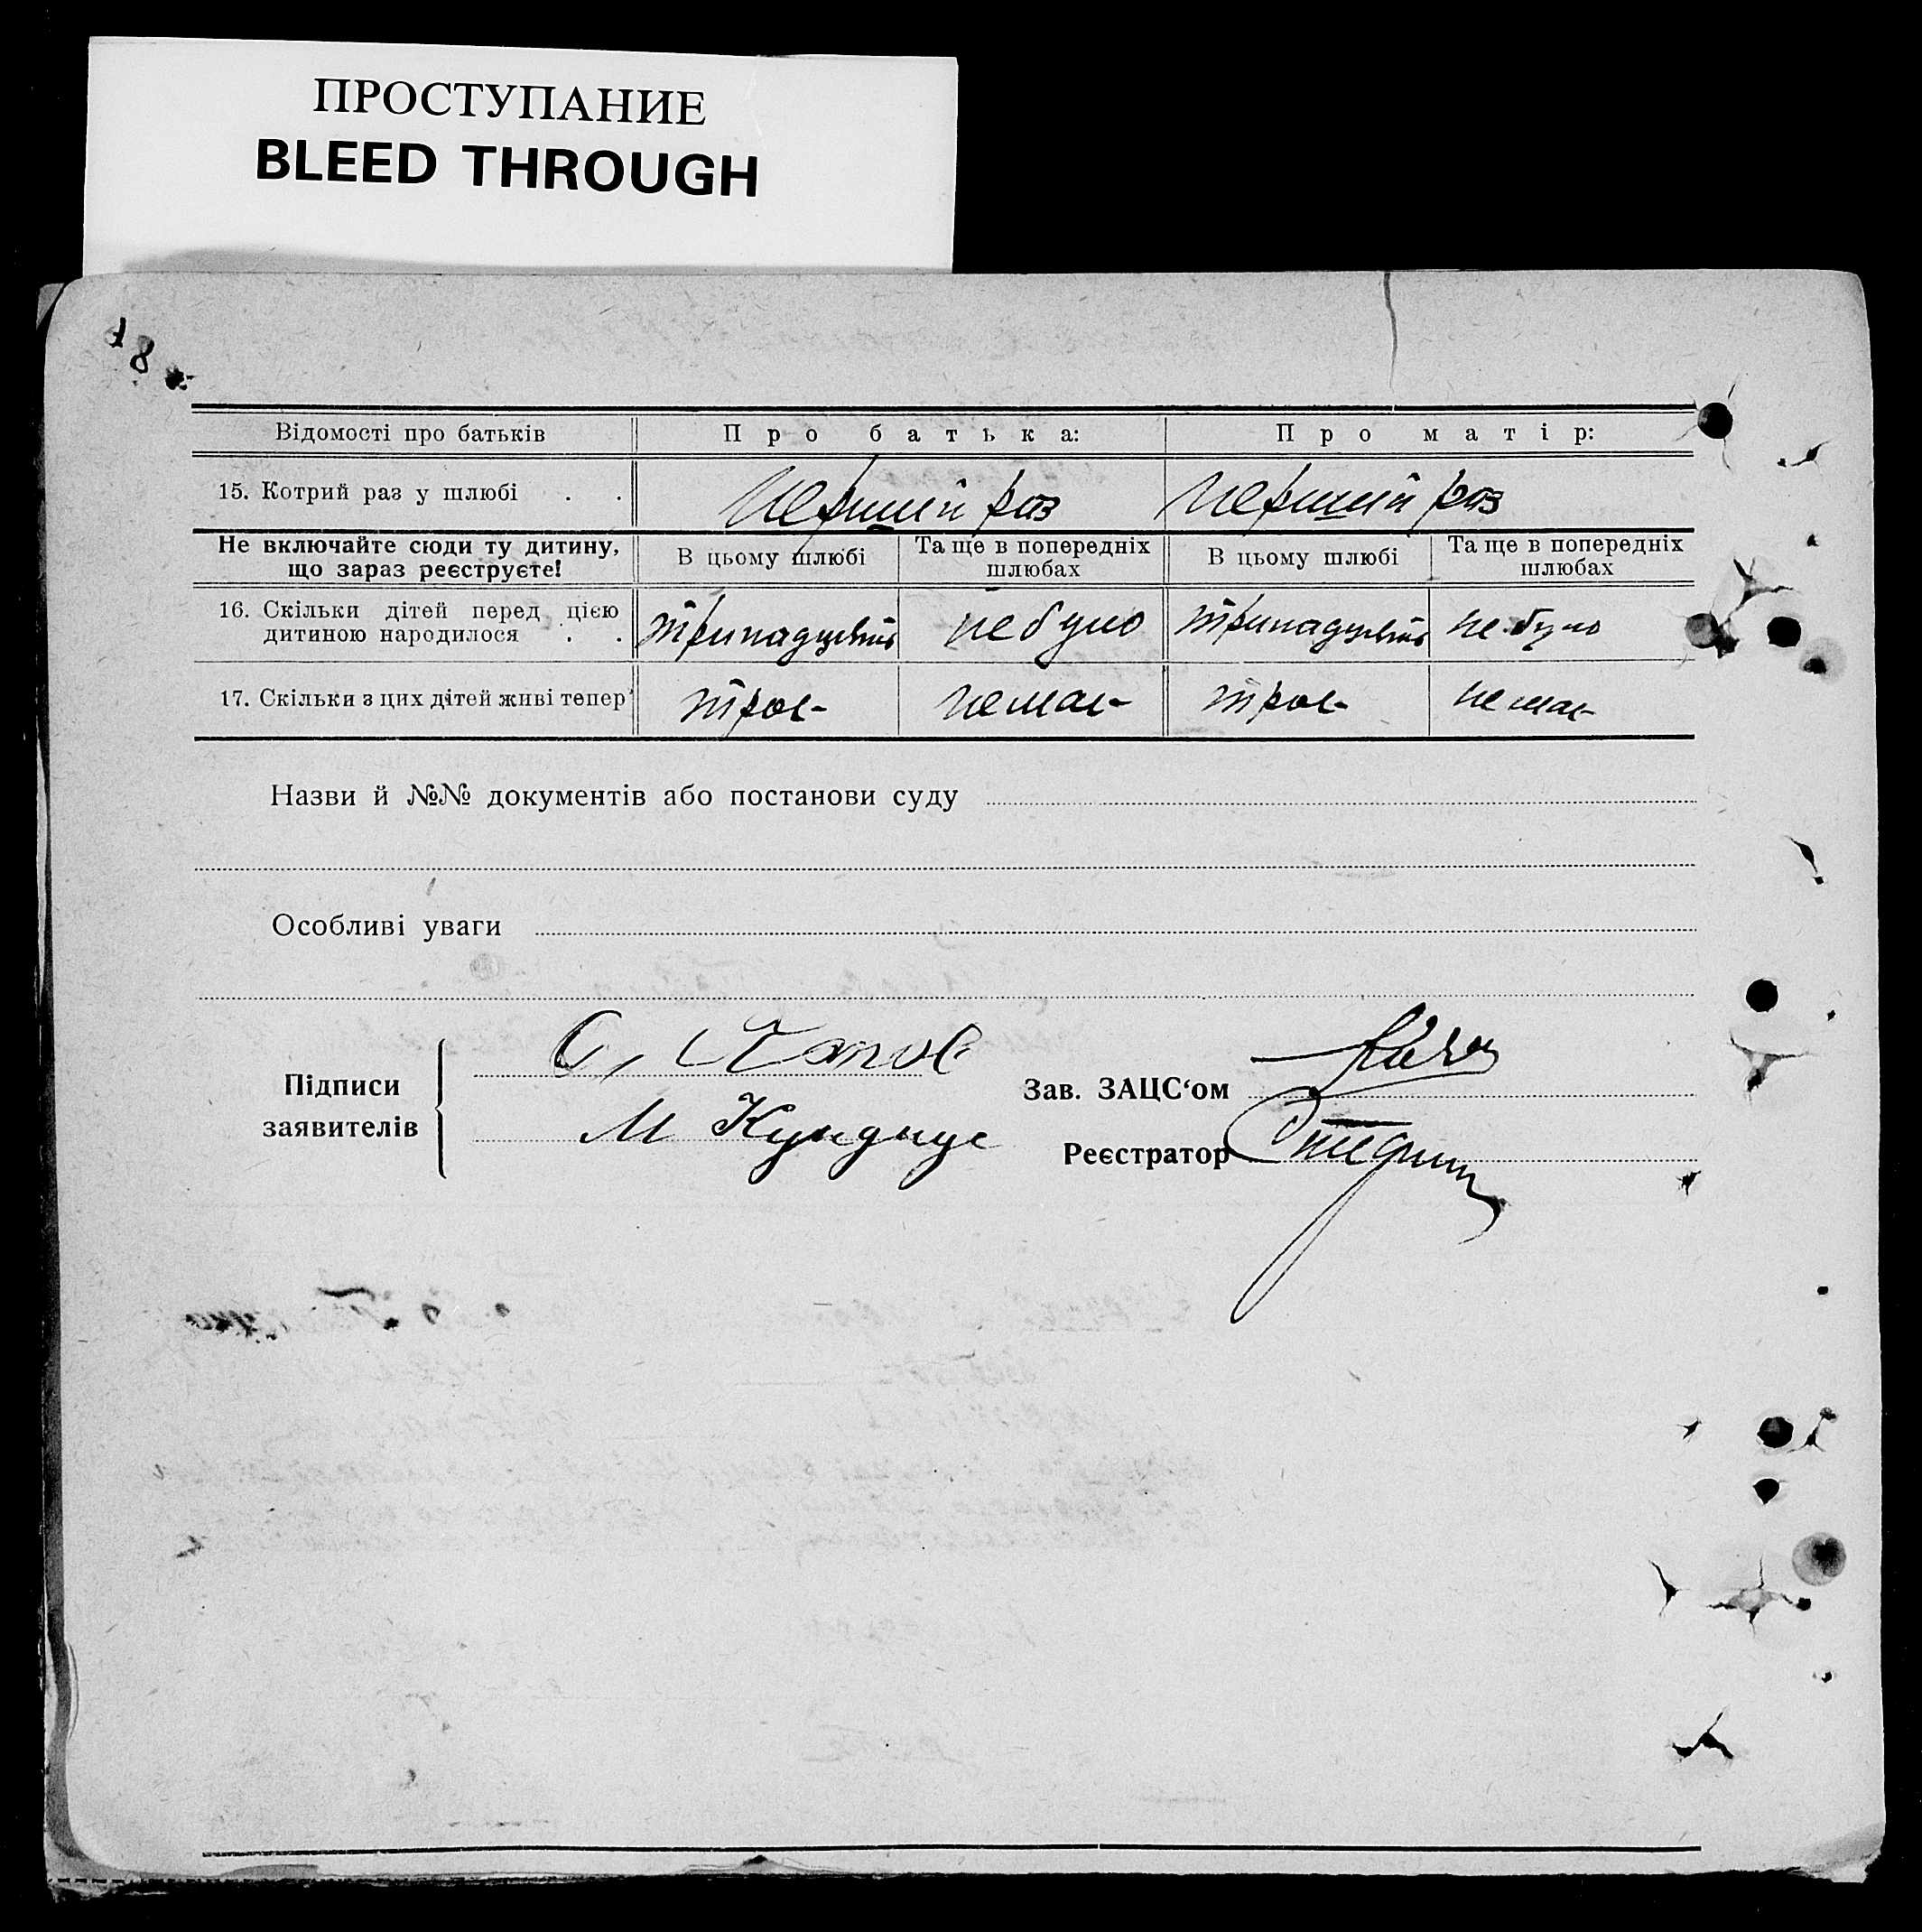 ПРОСТУПАНИЕ
BLEED THROUGH
18
Відомості про батьків Про батька: Про матір:
15. Котрий раз у шлюбі . . перший раз перший раз
Не включайте сюди ту дитину, що зараз реєструєте! В цьому шлюбі Та ще в попередніх шлюбах В цьому шлюбі Та ще в попередніх шлюбах
16. Скільки дітей перед цією
дитиною народилося . . тринадцять не було тринадцять не було
17. Скільки з цих дітей живі тепер троє немає троє немає
Назви й №№ документів або постанови суду
Особливі уваги
Підписи
заявителів
С,
М
Зав. ЗАЦС‘ом
Реєстратор